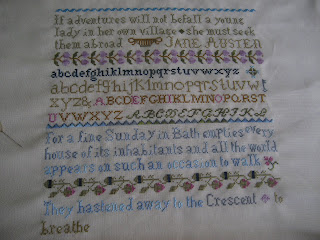 If adventures will not befall a young
lady in her own village she must seek
them abroad JANE AUSTEN
abcdefghijklmnopqrstuvwxyz
abcdefghijklmnopqrstuvw
xyz& ABCDEFGHIJKLMNOPQRST
UVWXYZ ABCDEFGHIJKL
For a fine Sunday in Bath empties every
house of its inhabitants and all the world
appears on such an occasion to walk
They hastened away to the Crescent to
breathe